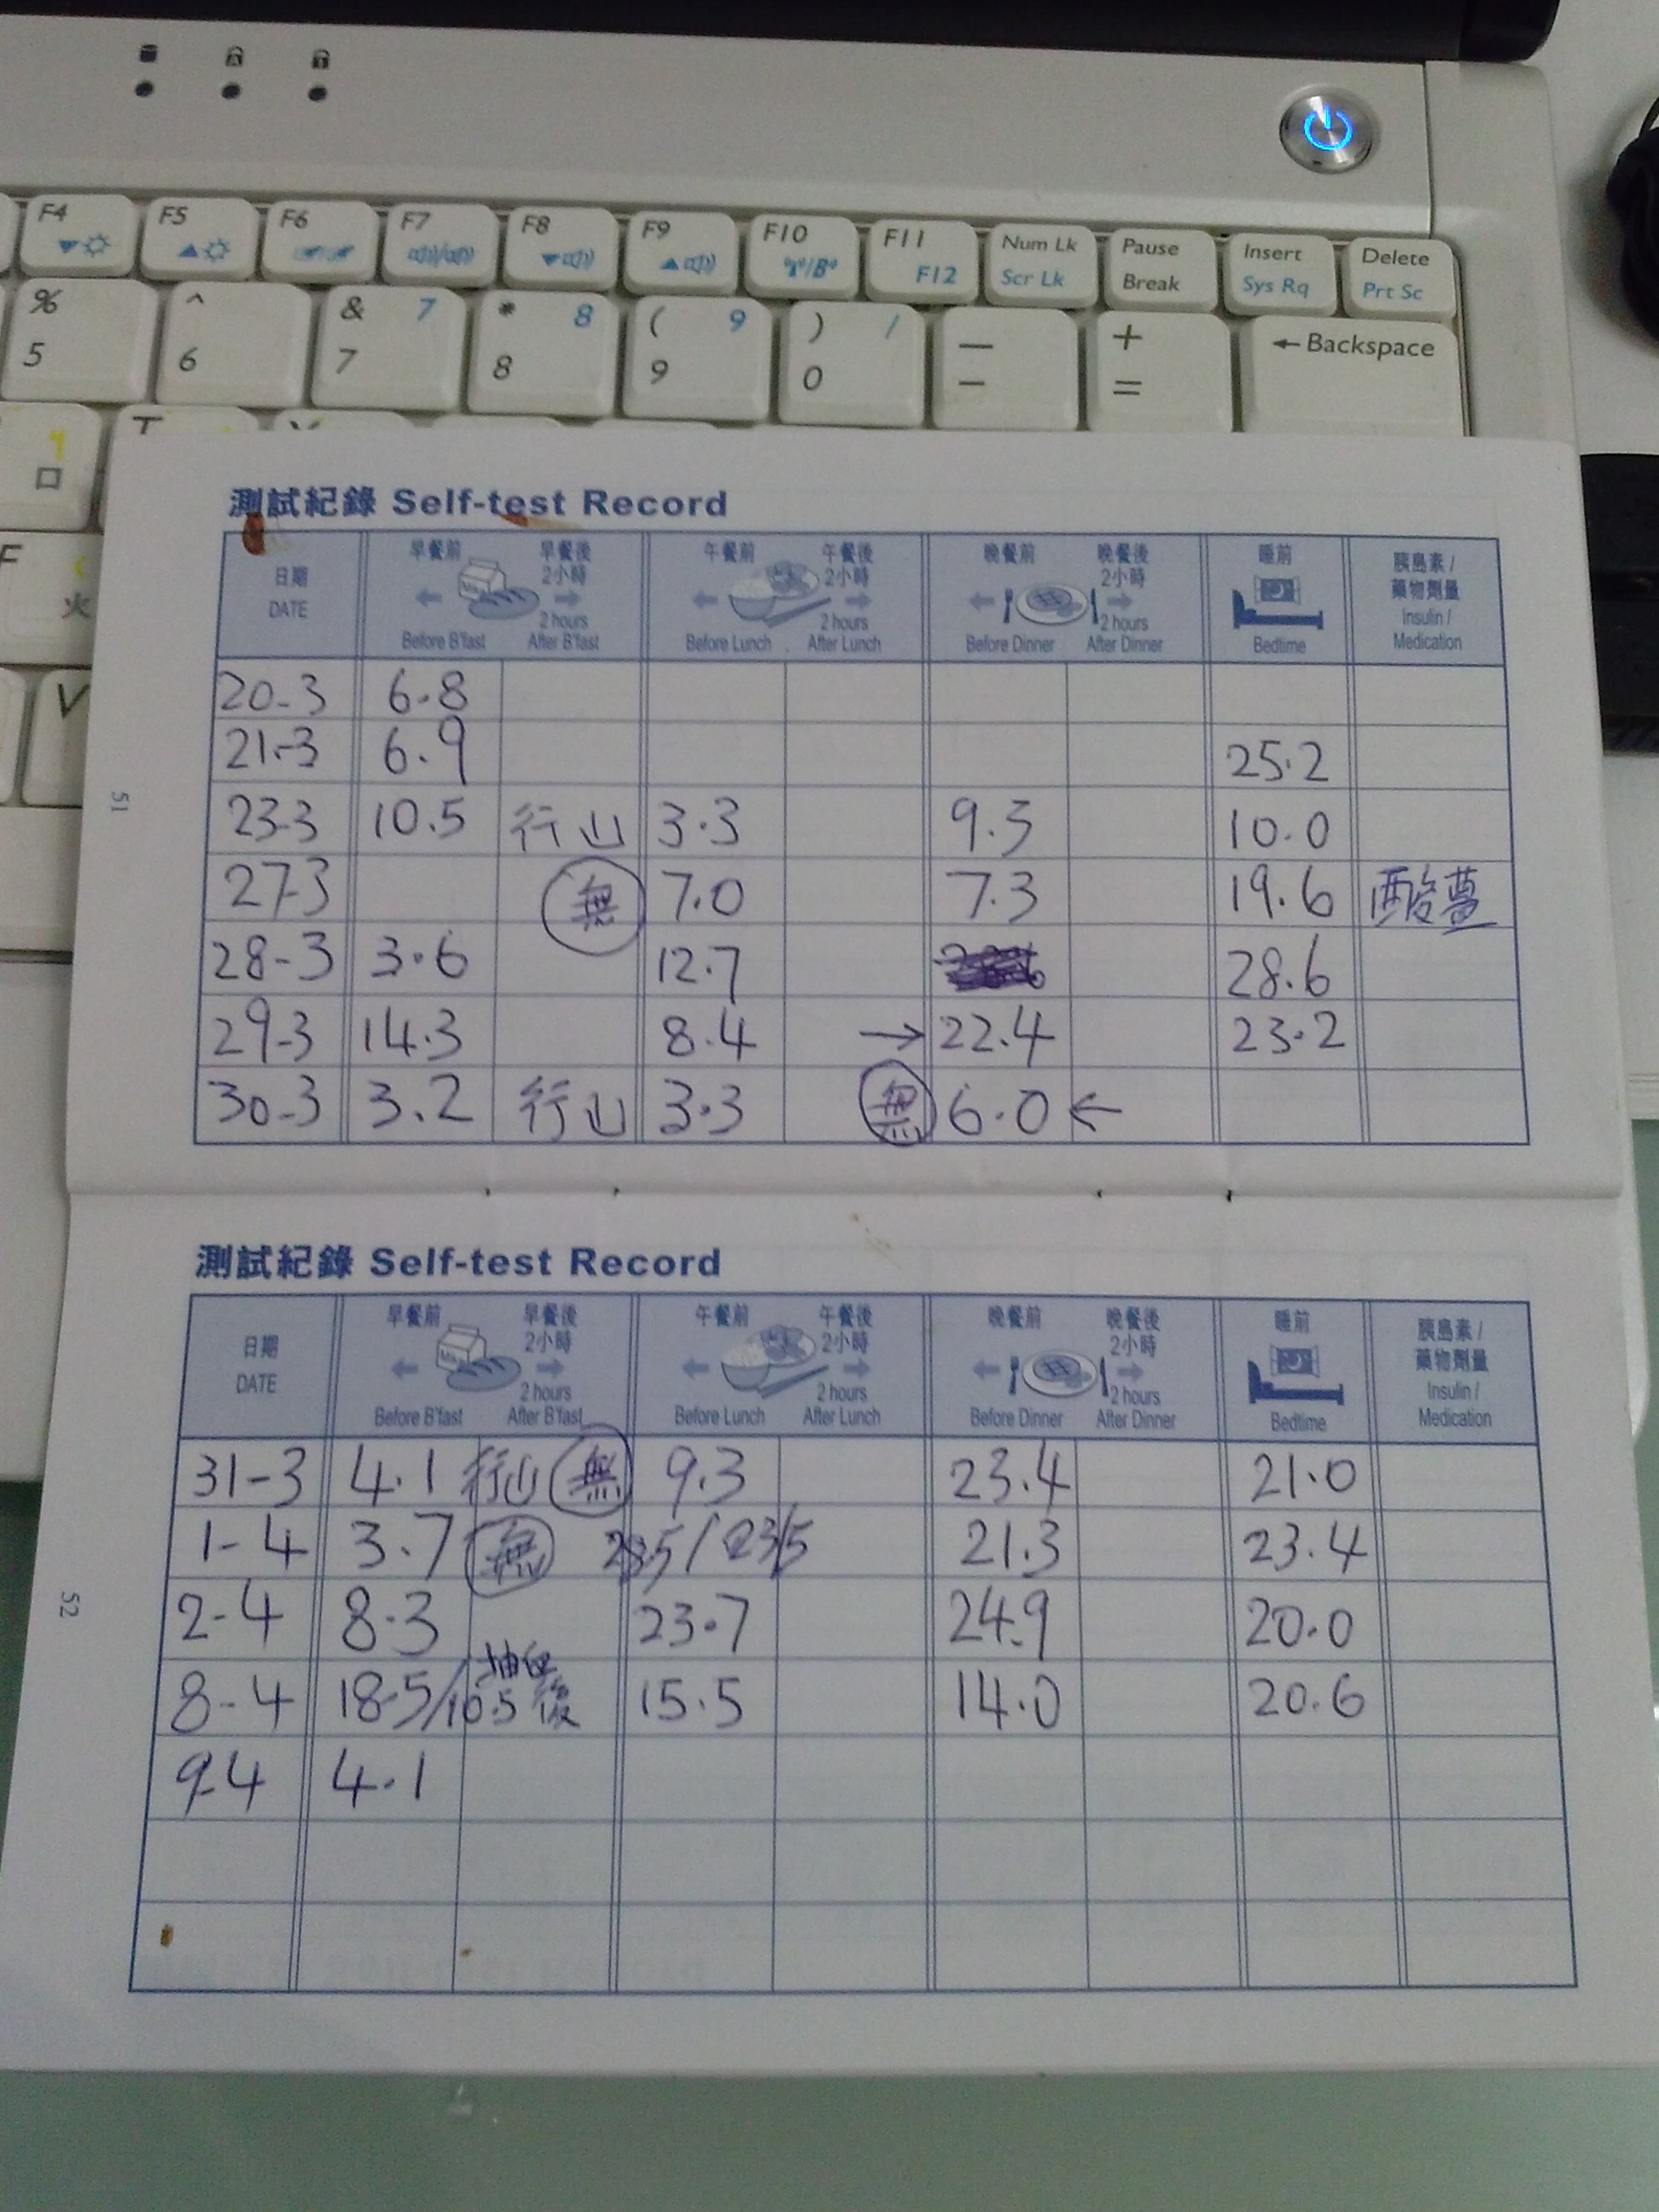 F4 F5 F6 F7 F8 F9 F10 F11 F12 Num Lk Scr Lk Pause Break Insert Sys Rq Delete Prt Sc
% 5 ^ 6 & 7 7 * 8 8 ( 9 9 ) 0 / — - + = ← Backspace
口 T Y
F 火
V
測試紀錄 Self-test Record
日期 DATE
早餐前 Before B'fast
早餐後 2小時 2 hours After B'fast
午餐前 Before Lunch
午餐後 2小時 2 hours After Lunch
晚餐前 Before Dinner
晚餐後 2小時 2 hours After Dinner
睡前 Bedtime
胰島素 / 藥物劑量 Insulin / Medication
20-3 6.8
21-3 6.9 25.2
23-3 10.5 行山 3.3 9.3 10.0
27-3 無 7.0 7.3 19.6 酸薑
28-3 3.6 12.7 28.6
29-3 14.3 8.4 → 22.4 23.2
30-3 3.2 行山 3.3 無 6.0 ←
51
測試紀錄 Self-test Record
日期 DATE
早餐前 Before B'fast
早餐後 2小時 2 hours After B'fast
午餐前 Before Lunch
午餐後 2小時 2 hours After Lunch
晚餐前 Before Dinner
晚餐後 2小時 2 hours After Dinner
睡前 Bedtime
胰島素 / 藥物劑量 Insulin / Medication
31-3 4.1 行山 無 9.3 23.4 21.0
1-4 3.7 無 21.3 23.4
2-4 8.3 23.7 24.9 20.0
8-4 18.5/10.5 抽血後 15.5 14.0 20.6
9-4 4.1
52